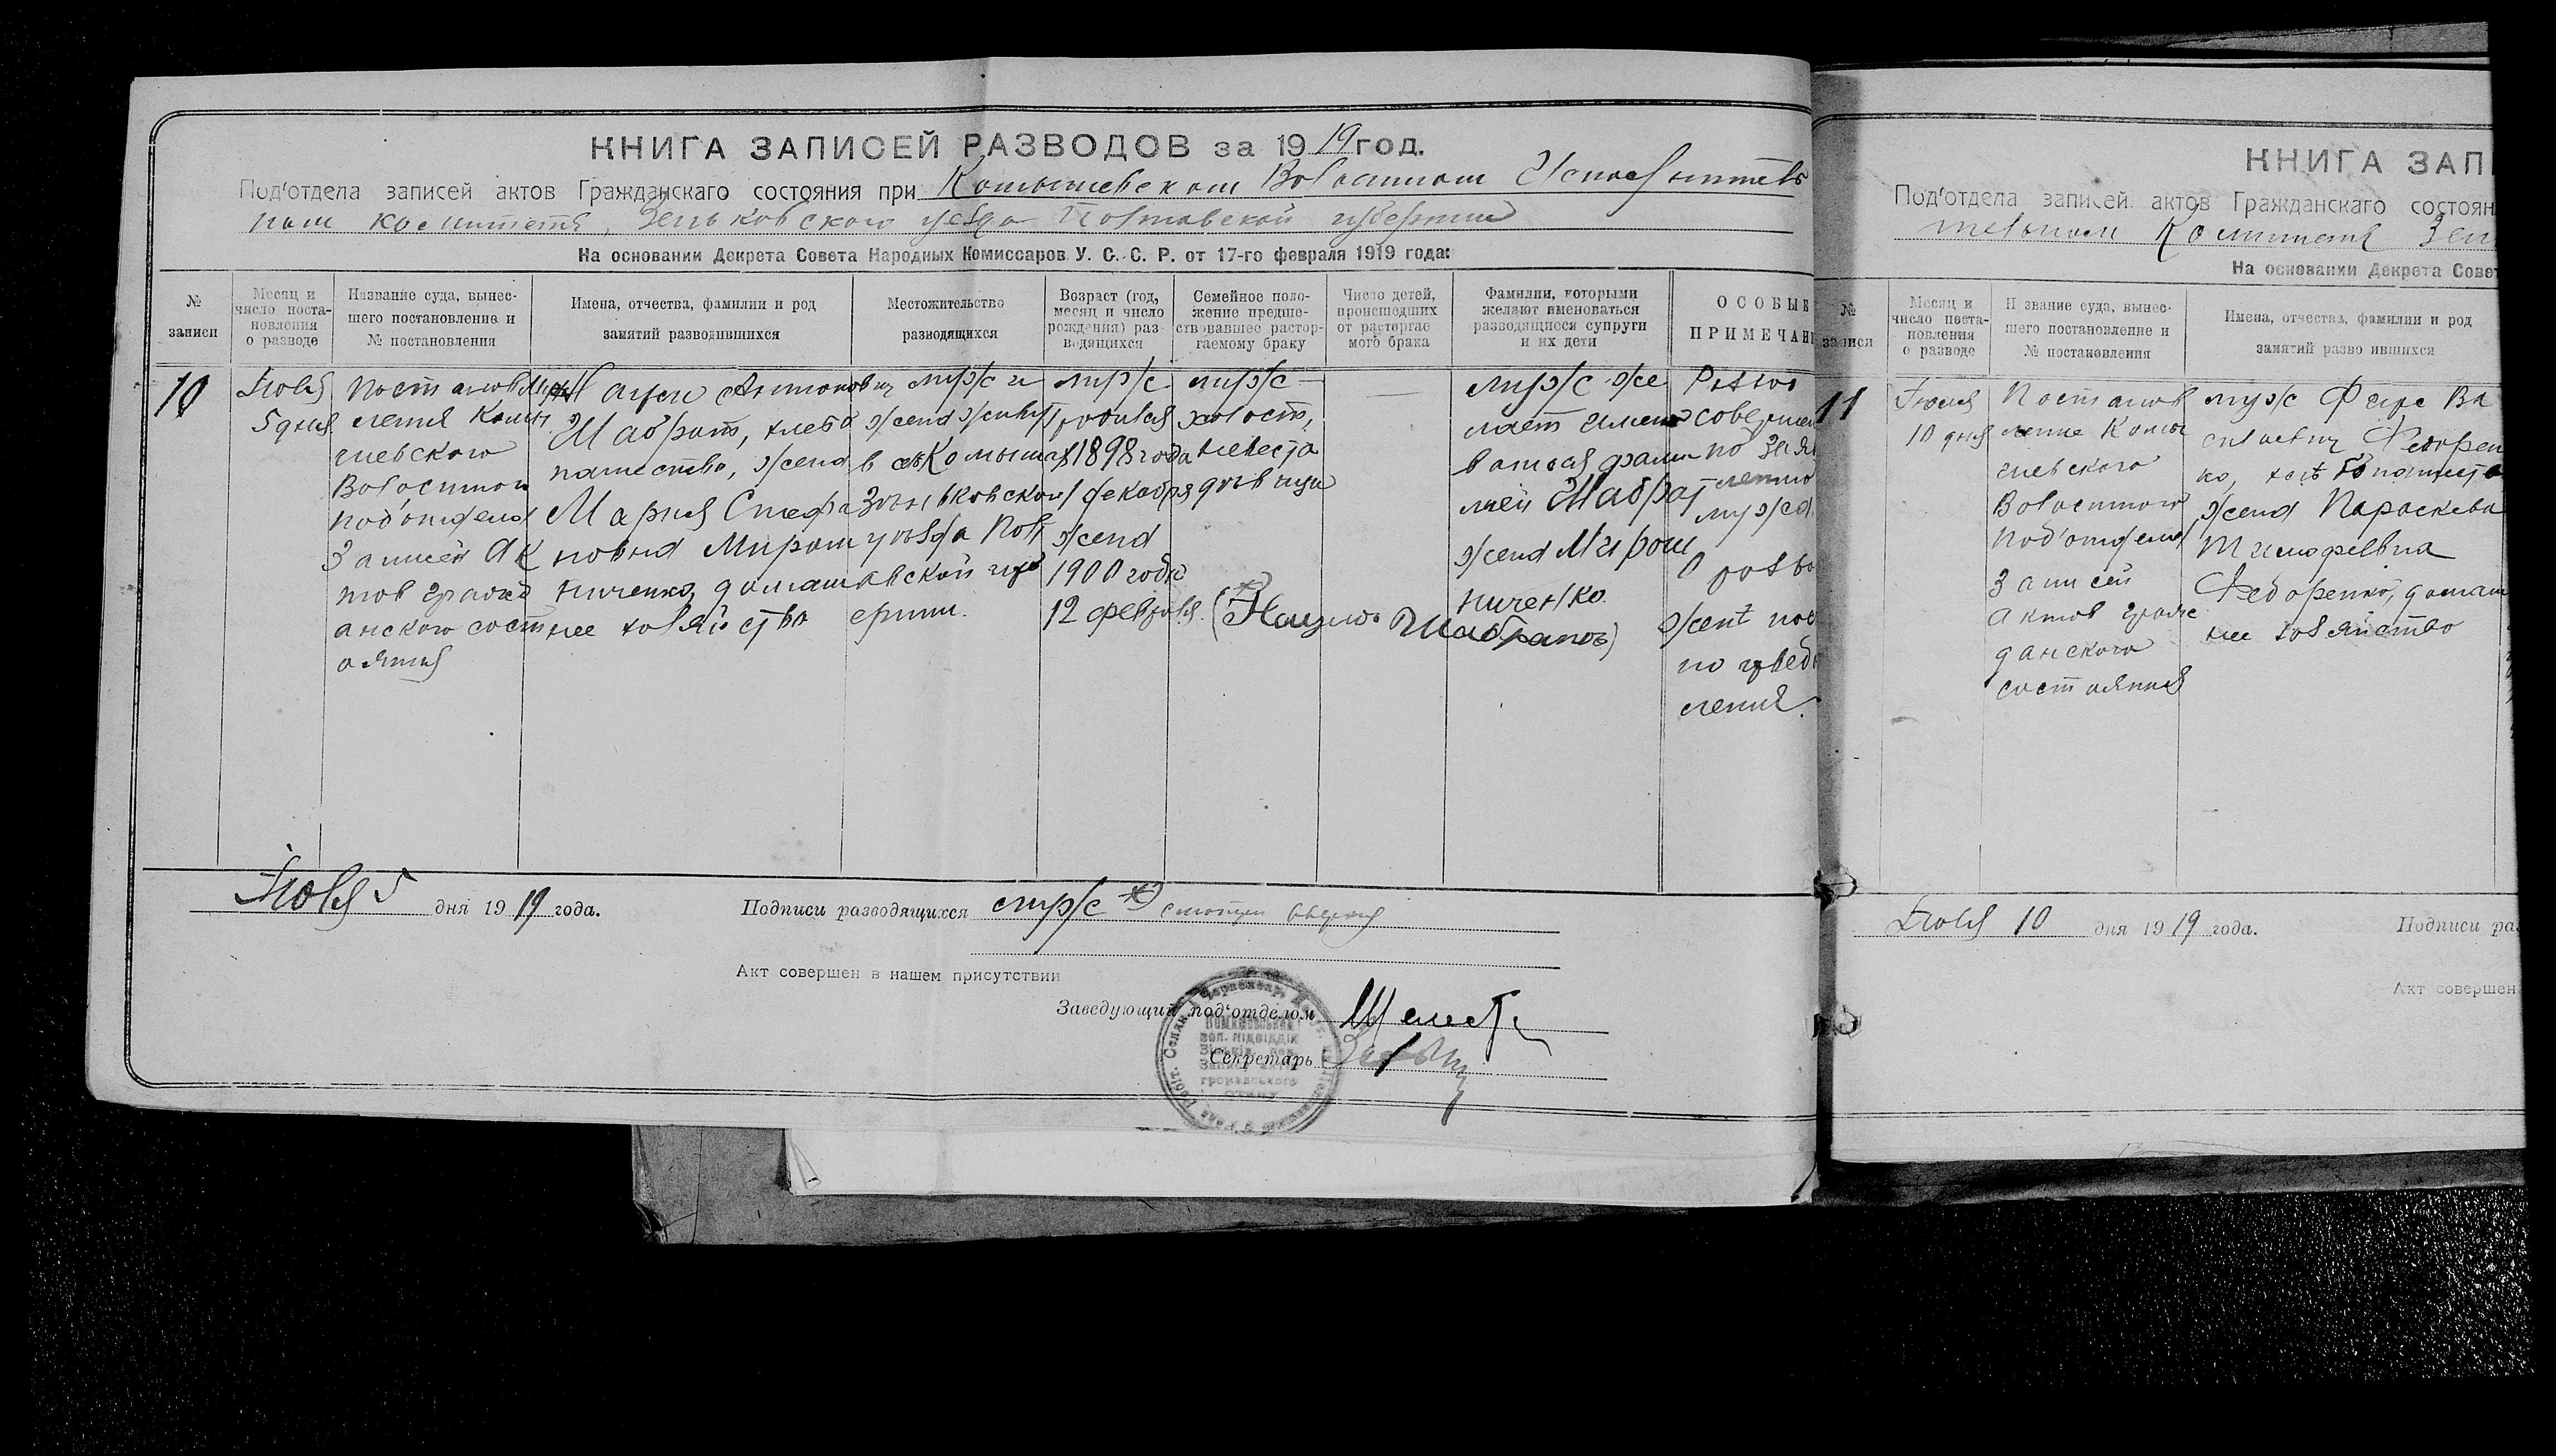 КНИГА ЗАПИСЕЙ РАЗВОДОВ за 1919 год.
Под'отдела записей актов Гражданскаго состояния при Комышевском Волостном Исполнитель
ном комитете, Зеньковского уезда Полтавской губернии
На основании Декрета Совета Народных Комиссаров У. С. С. Р. от 17-го февраля 1919 года:
№
записи
Месяц и
число поста-
новления
о разводе
Название суда, вынес-
шего постановление и
№ постановления
Имена, отчества, фамилии и род
занятий разводившихся
Местожительство
разводящихся
Возраст (год,
месяц и число
рождения) раз-
водящихся
Семейное поло-
жение предше-
ствовавшее растор-
гаемому браку
Число детей,
происшедших
от расторгае
мого брака
Фамилии, которыми
желают именоваться
разводящиеся супруги
и их дети
ОСОБЫЕ
ПРИМЕЧАН
10
Июля
5 дня
Постановл
ения Комы
шевского
Волостного
под'отдела
Записей Ак
тов гражд
анского сост
ояния
Наум Антонович
Шабрат, хлебо
пашество, жена
Мария Стефа
новна Мирош
ниченко, домаш
нее хозяйство
муж и
жена живут
в с. Комышах
Зеньковского
уезда Пол
тавской губ
ернии.
муж
родился
1898 года
1 декабря
жена
1900 года
12 февраля.
муж —
холост,
невеста
девица
—
муж же
лает имено
ваться фами
лией Шабрат
жена Мирош
ниченко.
Развод
совершен
по заяв
лению
мужа.
О разво
жене пос
но уведо
ления.
(*) Наум Шабрат)
Июля 5 дня 1919 года.
Подписи разводящихся муж *) смотри вверху
Акт совершен в нашем присутствии
Заведующий под'отделом
Секретарь
вол. підвідділ
громадського
стану
КНИГА ЗАП
Под'отдела записей актов Гражданскаго состоян
тельном Комитете Зень
На основании Декрета Совет
№
записи
Месяц и
число поста-
новления
о разводе
Н звание суда, вынес-
шего постановление и
№ постановления
Имена, отчества, фамилии и род
занятий разво ившихся
11
Июля
10 дня
Постанов
ление Комы
шевского
Волостного
под'отдела
Записей
Актов граж
данского
состояния
муж Федор Ва
сильевич Федорен
ко, хлебопашество
жена Параскева
Тимофеевна
Федоренко, домаш
нее хозяйство
Июля 10 дня 1919 года.
Подписи раз
Акт совершен